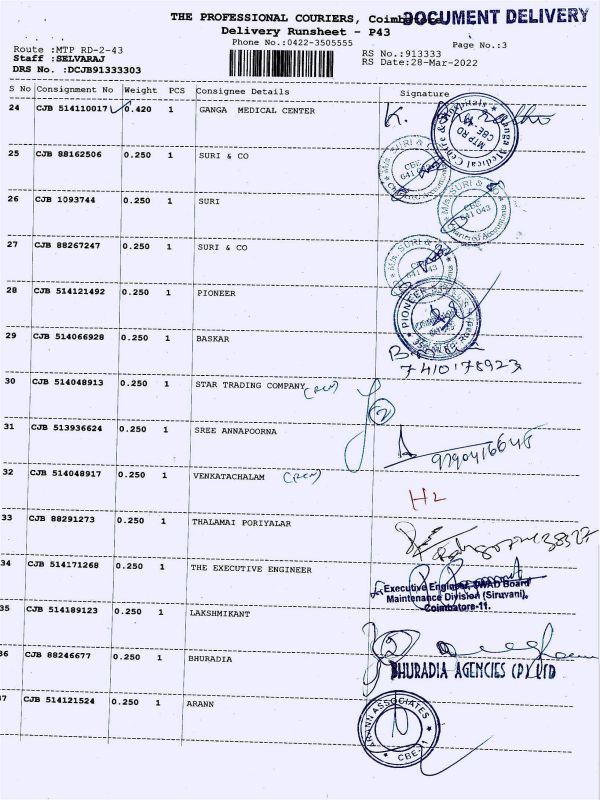 THE PROFESSIONAL COURIERS, Coimbatore
DOCUMENT DELIVERY
Delivery Runsheet - P43
Phone No.:0422-3505555
Page No.:3
Route :MTP RD-2-43
RS No.:913333
Staff :SELVARAJ
RS Date:28-Mar-2022
DRS No. :DCJB91333303
S No Consignment No Weight PCS Consignee Details Signature
24 CJB 514110017 0.420 1 GANGA MEDICAL CENTER
Ganga Medical Centre & Hospitals
MTP RD
CBE
25 CJB 88162506 0.250 1 SURI & CO
M/s. SURI & CO
CBE
641 043
26 CJB 1093744 0.250 1 SURI
M/s. SURI & CO
CBE
641 043
Chartered Accountants
27 CJB 88267247 0.250 1 SURI & CO
M/s. SURI & CO
28 CJB 514121492 0.250 1 PIONEER
PIONEER
29 CJB 514066928 0.250 1 BASKAR
7410178923
30 CJB 514048913 0.250 1 STAR TRADING COMPANY (RCM)
2
31 CJB 513936624 0.250 1 SREE ANNAPOORNA
32 CJB 514048917 0.250 1 VENKATACHALAM (RCM)
HL
33 CJB 88291273 0.250 1 THALAMAI PORIYALAR
34 CJB 514171268 0.250 1 THE EXECUTIVE ENGINEER
Executive Engineer, TWAD Board
Maintenance Division (Siruvani),
Coimbatore-11.
35 CJB 514189123 0.250 1 LAKSHMIKANT
36 CJB 88246677 0.250 1 BHURADIA
BHURADIA AGENCIES (P) LTD
37 CJB 514121524 0.250 1 ARANN
ARANN ASSOCIATES
CBE-11